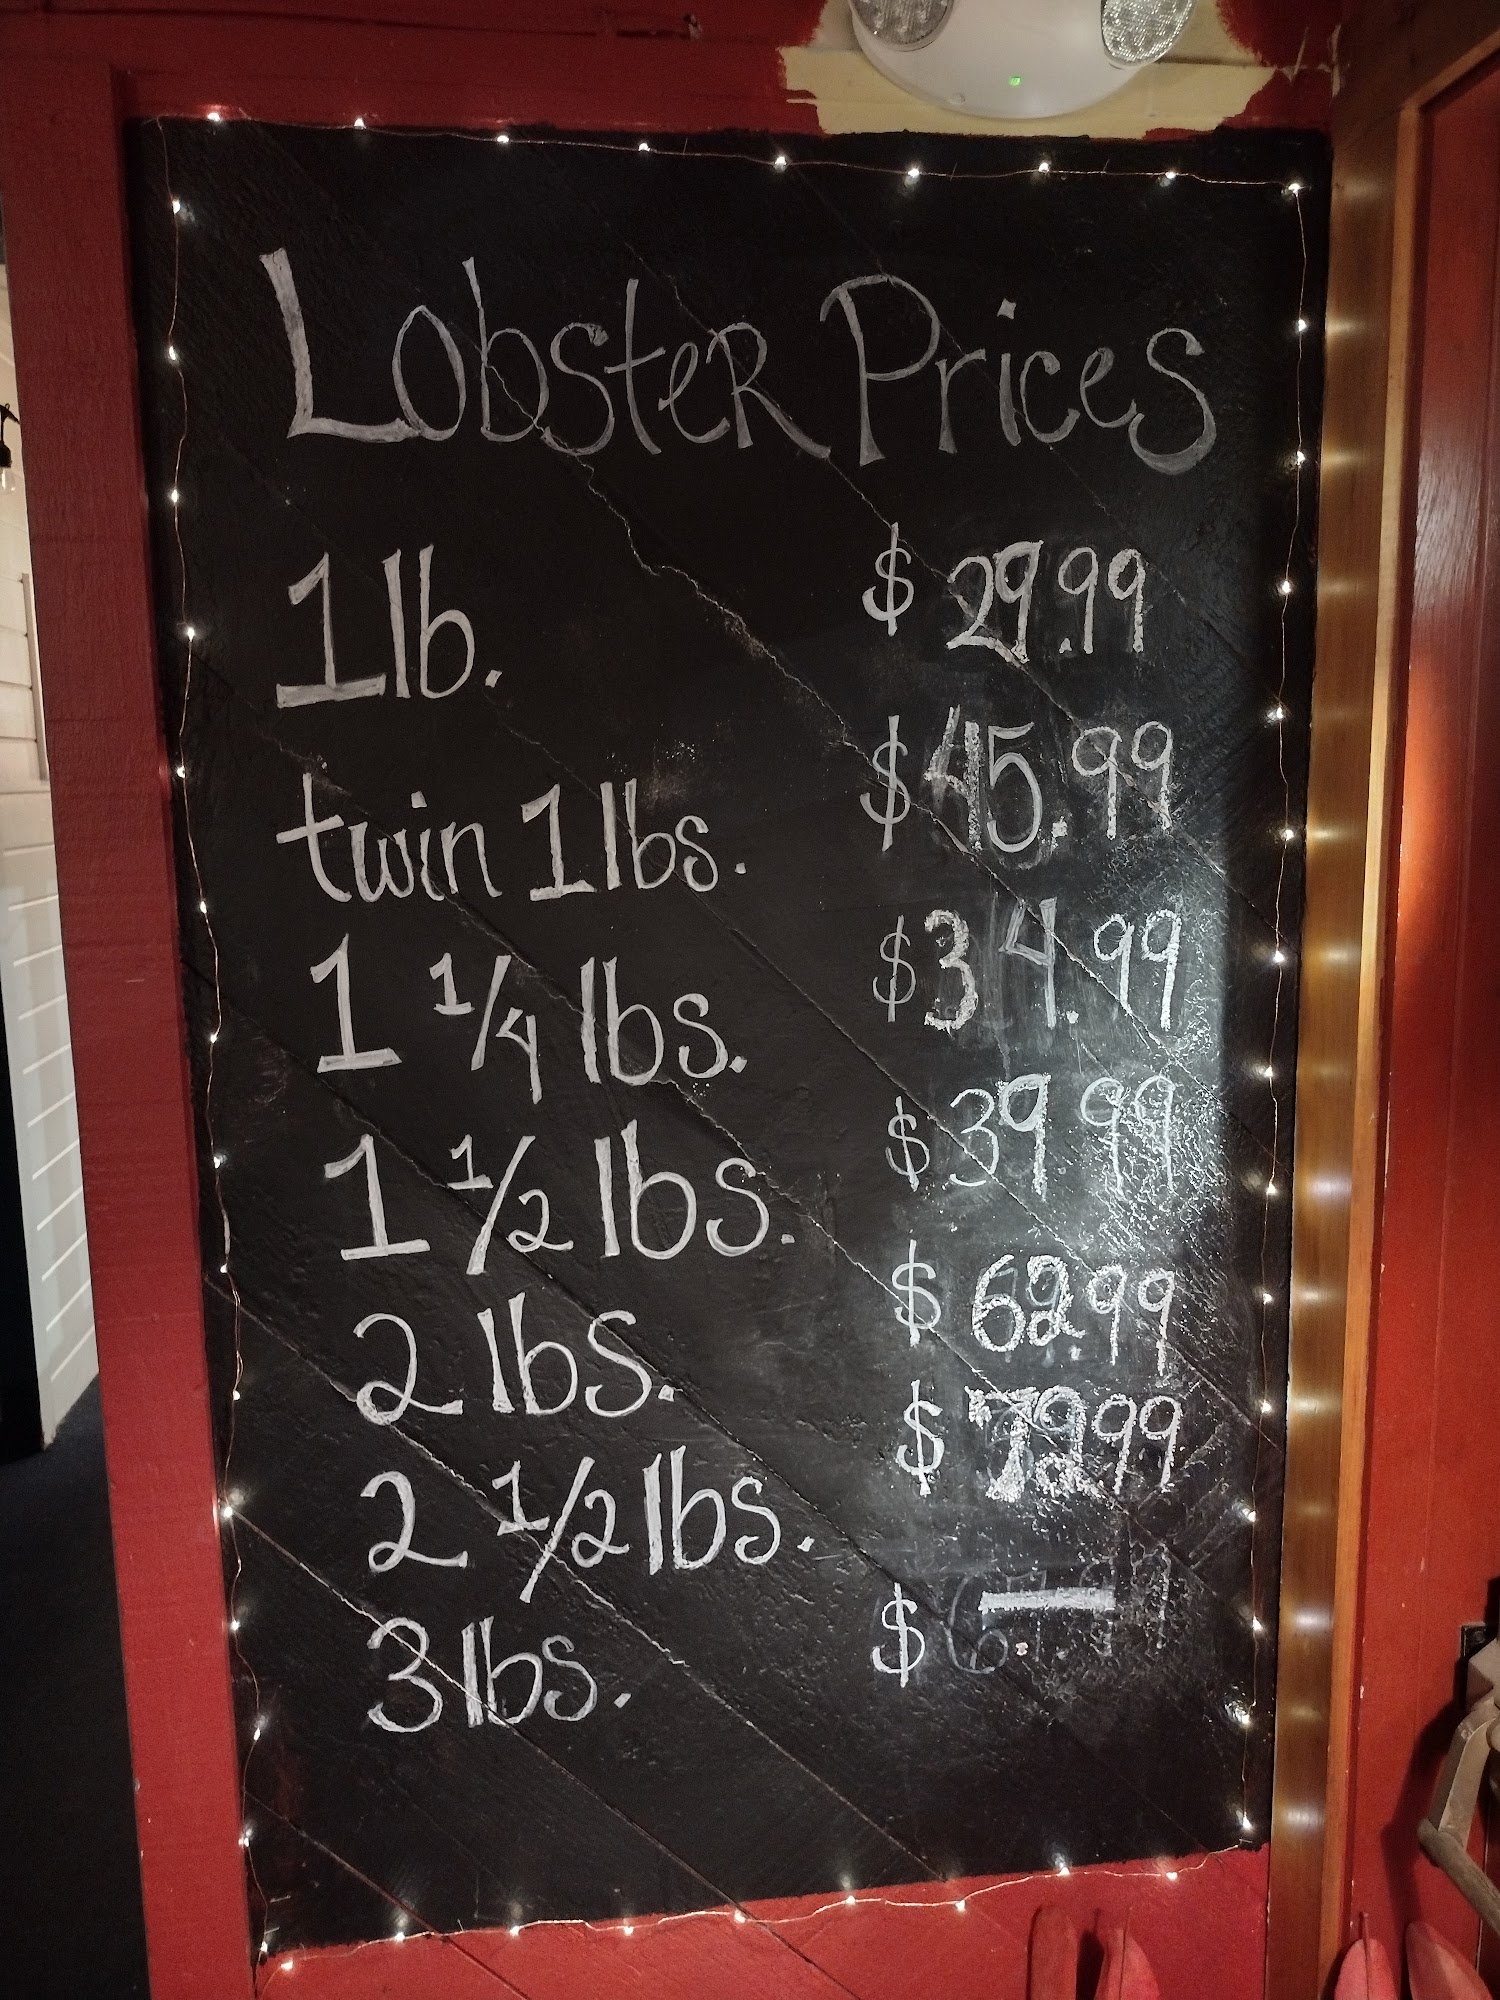 Lobster Prices
1 lb. $ 29.99
twin 1 lbs. $ 45.99
1 1/4 lbs. $ 34.99
1 1/2 lbs. $ 39.99
2 lbs. $ 62.99
2 1/2 lbs. $ 72.99
3 lbs. $ —